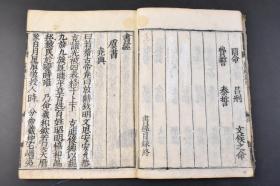 冏命 呂刑 文侯之命
費誓 秦誓
書經目錄終
書經
虞書
堯典
曰若稽古帝堯曰放勳欽明文思安安允恭克
讓光被四表格于上下克明俊德以親
九族九族既睦平章百姓百姓昭明協和萬
邦黎民於變時雍乃命羲和欽若昊天曆
象日月星辰敬授人時分命羲仲宅嵎夷